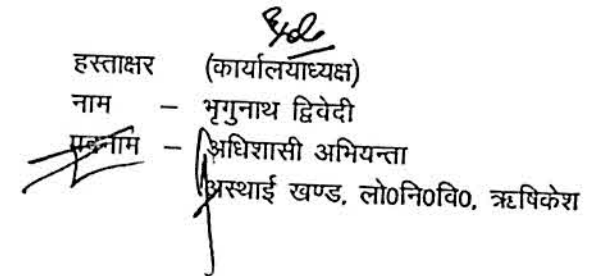 हस्ताक्षर (कार्यालयाध्यक्ष)
नाम – भृगुनाथ द्विवेदी
पदनाम – अधिशासी अभियन्ता
अस्थाई खण्ड, लो0नि0वि0, ऋषिकेश